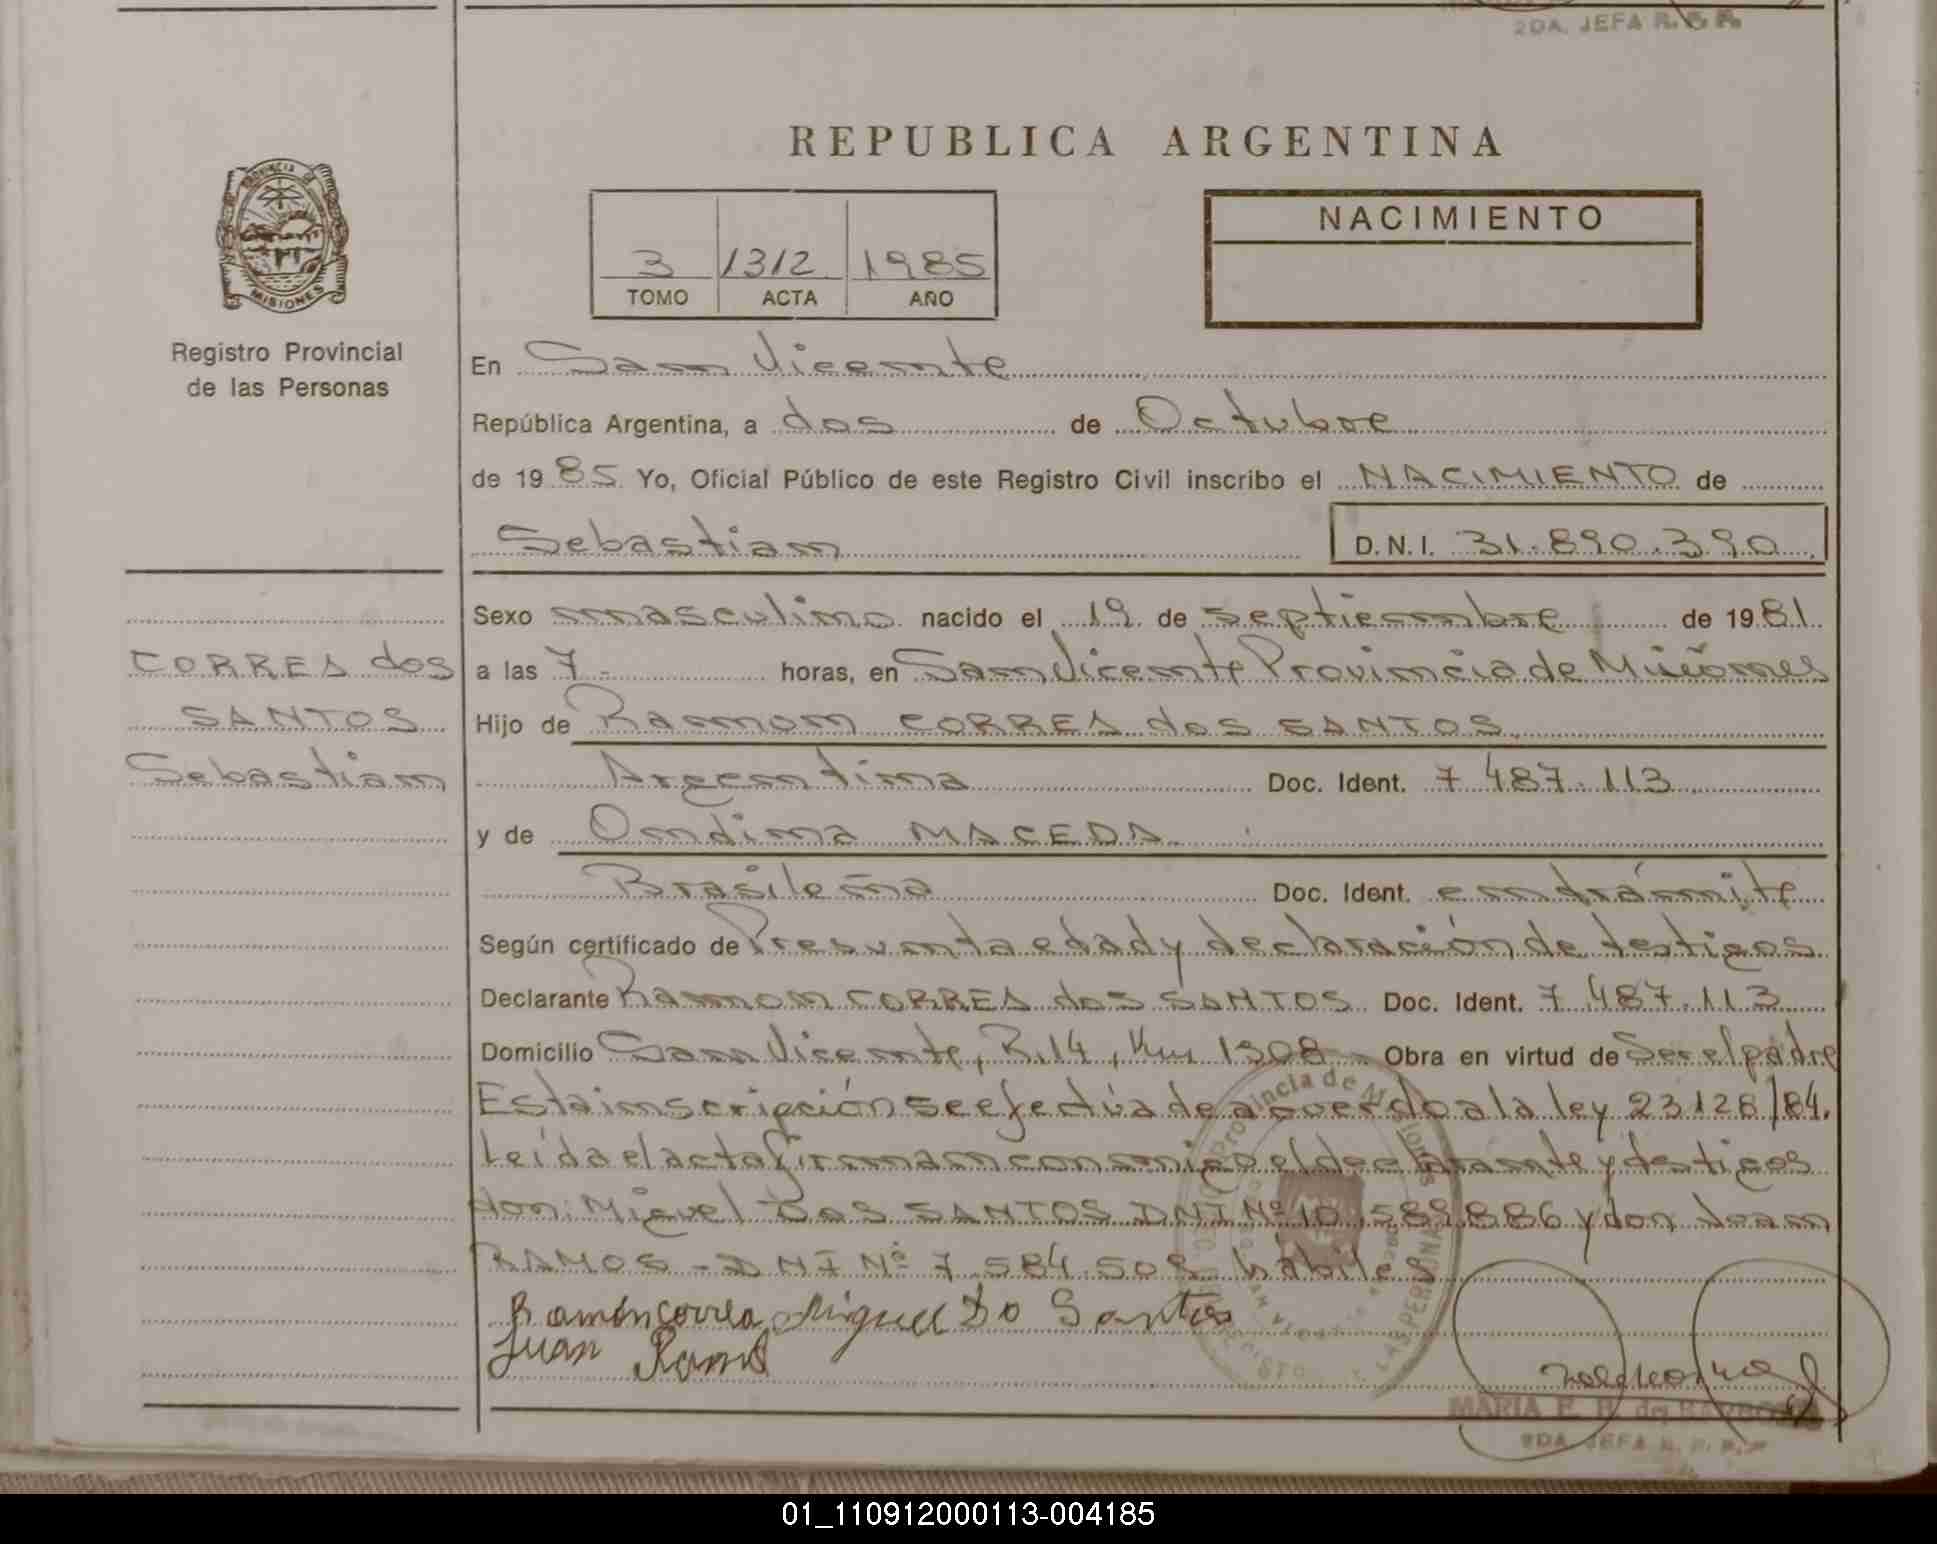 2DA. JEFA R. P. P.
REPUBLICA ARGENTINA
PROVINCIA DE
MISIONES
Registro Provincial
de las Personas
3 1312 1985
TOMO ACTA AÑO
NACIMIENTO
En San Vicente
República Argentina, a dos de Octubre
de 1985 Yo, Oficial Público de este Registro Civil inscribo el NACIMIENTO de
Sebastian D.N.I. 31.890.390
CORREA dos
SANTOS
Sebastian
Sexo masculino nacido el 19 de septiembre de 1981
a las 7 - horas, en San Vicente Provincia de Misiones
Hijo de Ramon CORREA dos SANTOS
Argentina Doc. Ident. 7 487.113
y de Ondina MACEDA
Brasileña Doc. Ident. en trámite
Según certificado de Presunta edad y declaración de testigos
Declarante Ramon CORREA dos SANTOS Doc. Ident. 7 487.113
Domicilio San Vicente, R.14, Km 1308 Obra en virtud de Ser el padre
Esta inscripción se efectúa de acuerdo a la ley 23128/84.
Leída el acta firman conmigo el declarante y testigos
don: Miguel DOS SANTOS DNI Nº 10.589.886 y don Juan
RAMOS - DNI Nº 7.584.509 hábiles
Ramón correa Miguel Do Santos
Juan Ramos
MARIA E. B. de BARBOZA
2DA. JEFA R. P. P.
01_110912000113-004185